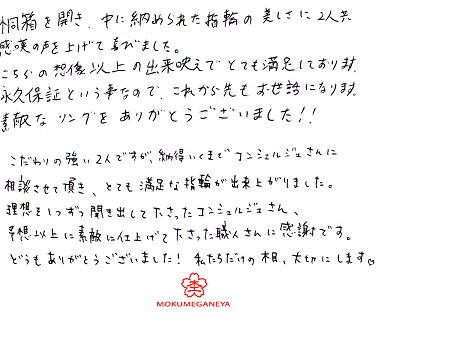 桐箱を開き、中に納められた指輪の美しさに2人共
感嘆の声を上げて喜びました。
こちらの想像以上の出来映えでとても満足しております。
永久保証という事なので、これから先もお世話になります。
素敵なリングをありがとうございました!!
こだわりの強い2人ですが、納得いくまでコンシェルジュさんに
相談させて頂き、とても満足な指輪が出来上がりました。
理想を1つずつ聞き出して下さったコンシェルジュさん、
予想以上に素敵に仕上げて下さった職人さんに感謝です。
どうもありがとうございました! 私たちだけの木目、大切にします♡
MOKUMEGANEYA